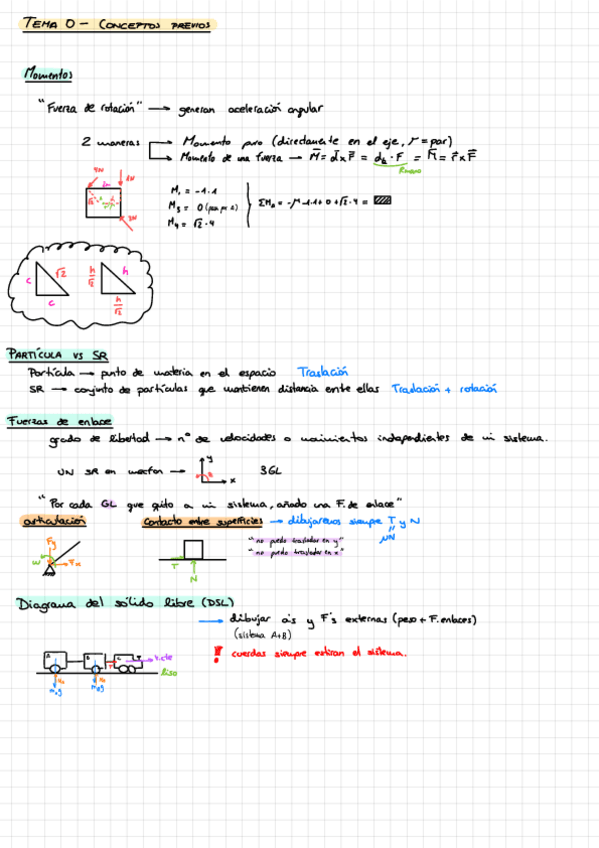 TEMA 0 - CONCEPTOS PREVIOS
Momentos
"Fuerza de rotación" → generan aceleración angular
2 maneras → Momento puro (directamente en el eje, M = par)
→ Momento de una fuerza → M̄ = d̄ x F̄ = d⊥ · F = M̄ = r̄ x F̄
4N
1N
3N
M₁ = -1·1
M₃ = 0
M₄ = √2·4
c
√2
c
h/√2
h
h/√2
PARTÍCULA VS SR
Partícula → punto de materia en el espacio Traslación
SR → conjunto de partículas que mantienen distancia entre ellas Traslación + rotación
Fuerzas de enlace
grado de libertad → nº de velocidades o movimientos independientes de mi sistema.
UN SR en → y x 3GL
"Por cada GL que quito a mi sistema, añado una F. de enlace"
articulación
contacto entre superficies → dibujaremos siempre T y N
μN
"no puedo trasladar en y"
"no puedo trasladar en x"
Fy
Fx
T
N
Diagrama del sólido libre (DSL)
→ dibujar a's y F's externas (peso + F. enlaces)
(sistema A+B)
! cuerdas siempre estiran el sistema.
A B C T v.cte
liso